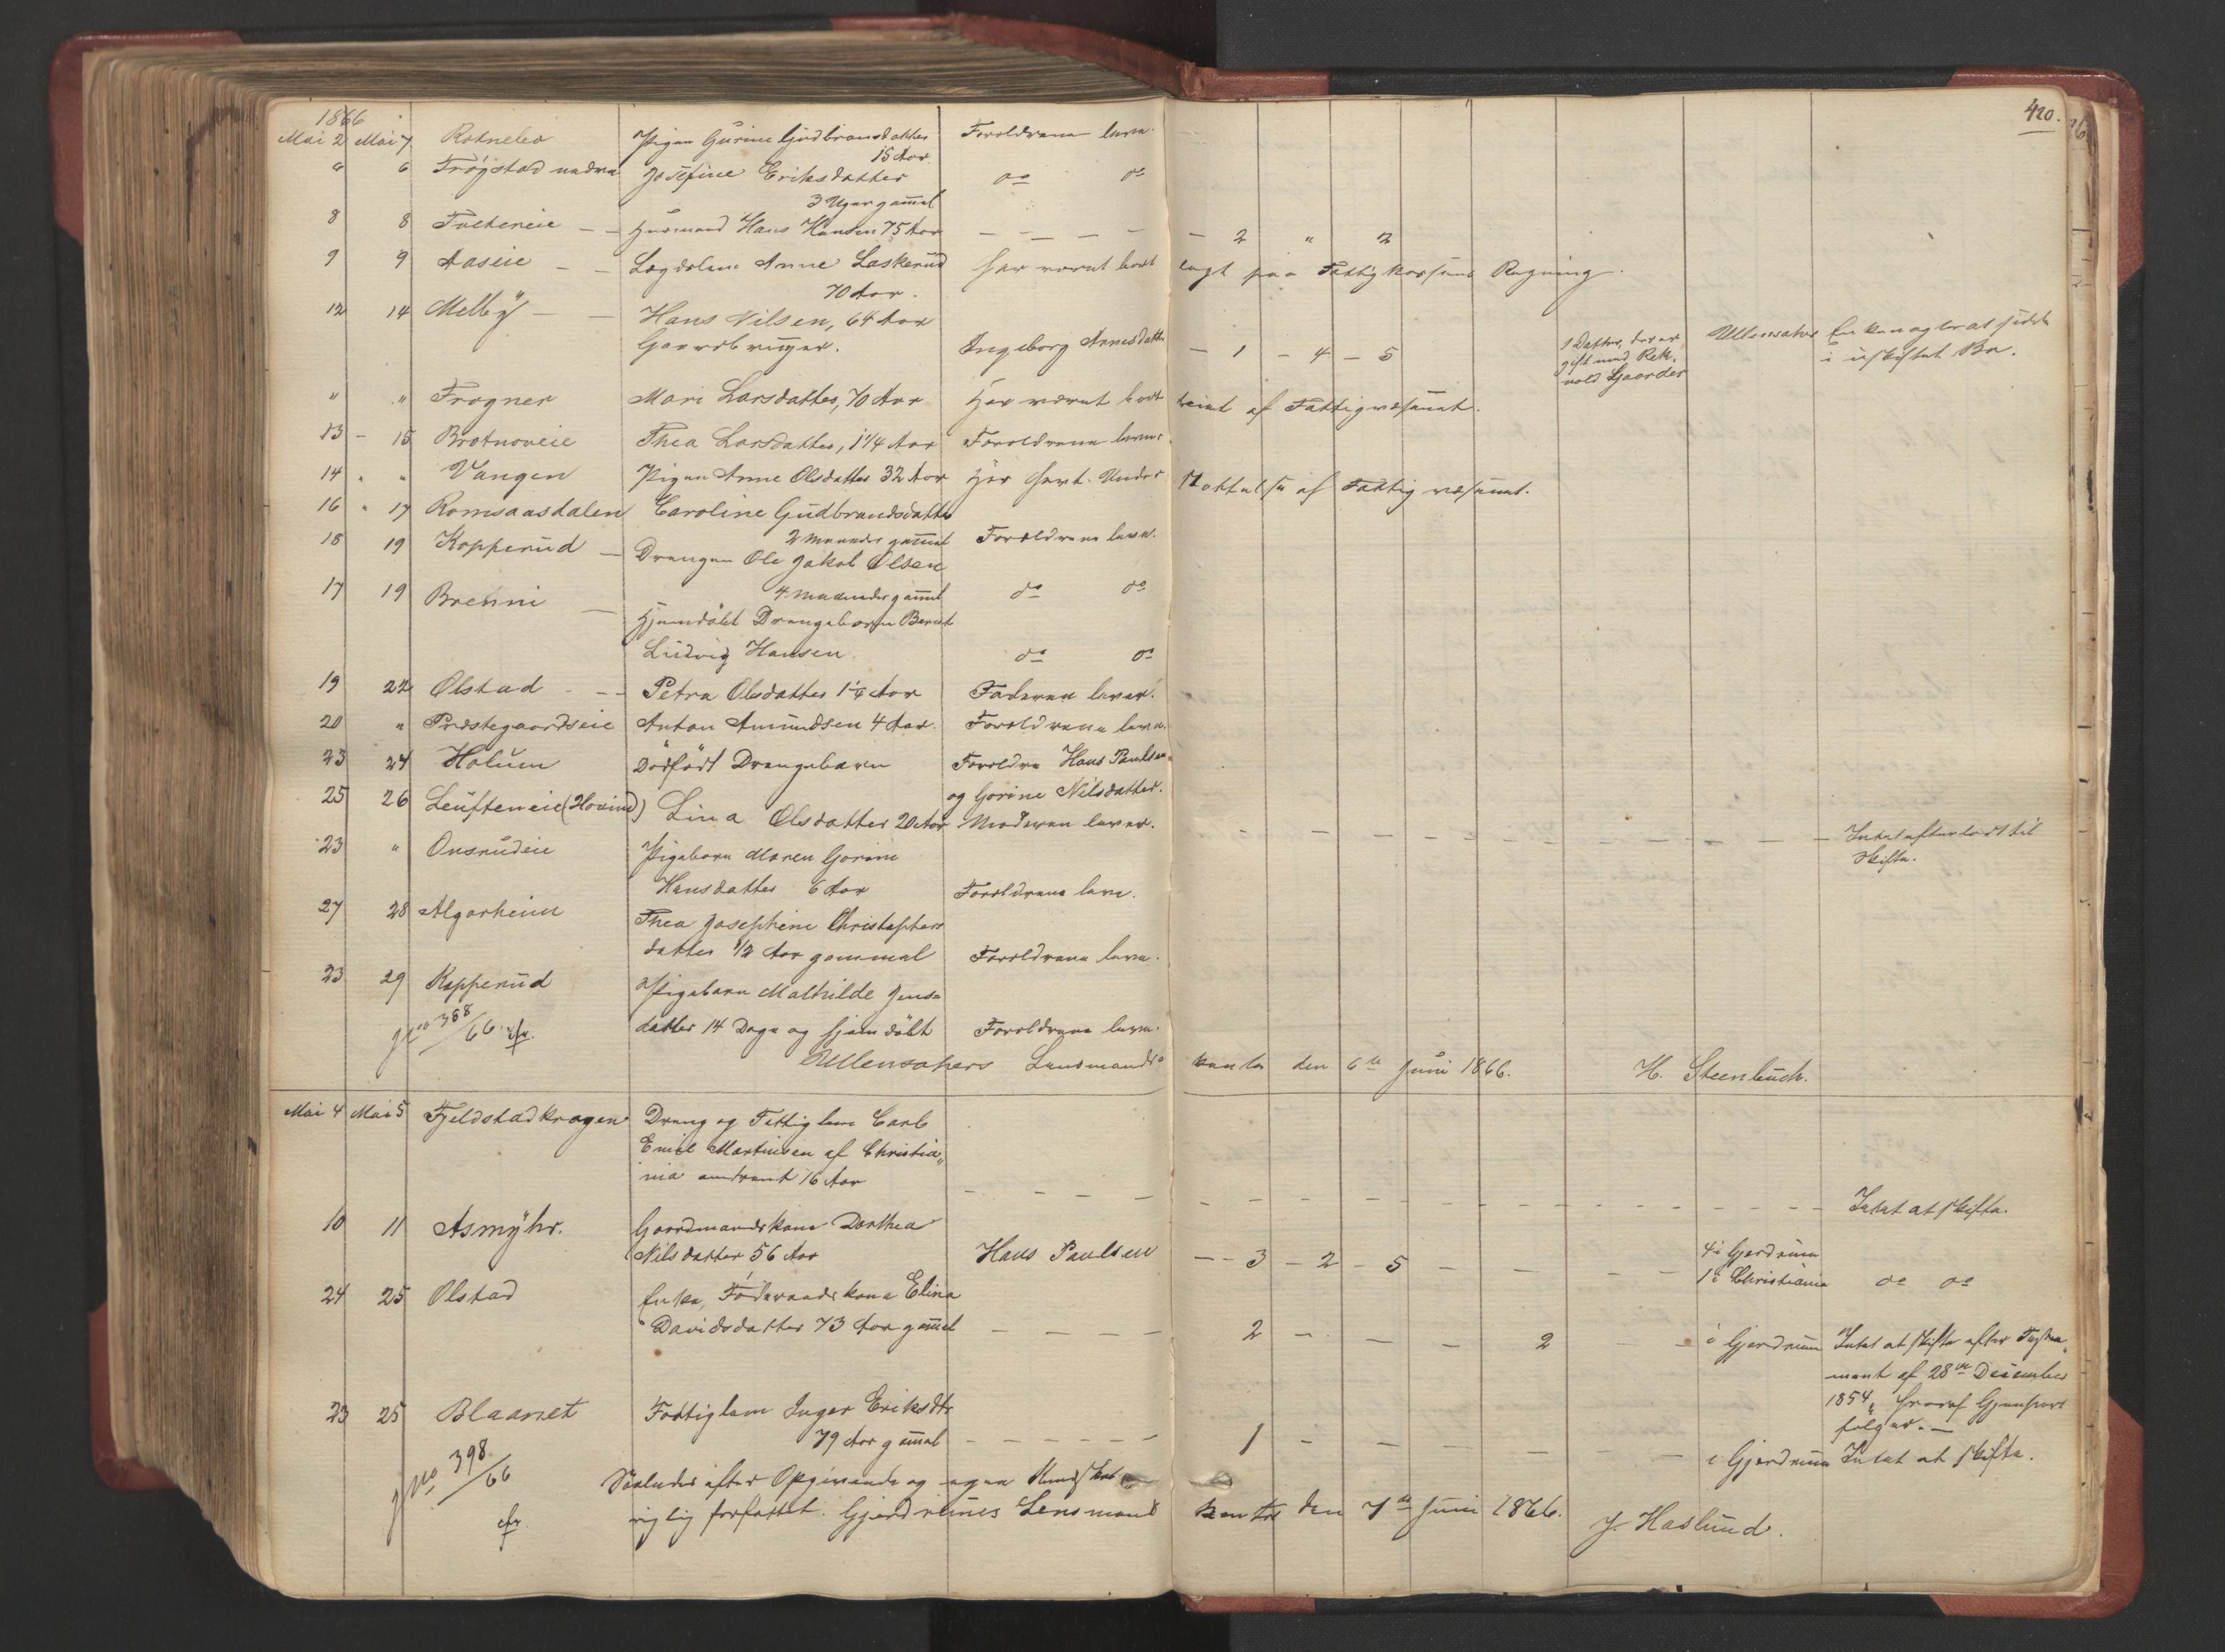 420.
1866
Mai 2 Mai 7 Rotnebo Pigen Gurine Gudbrandsdatter Foreldrene leve.
15 Aar.
6 6 Frøgstad nedre Josefine Eriksdatter do do
3 Uger gammel
8 8 Husmand Hans Hansen 75 Aar — — — — — 2 " 2
9 9 Aaseie — — Lægdslem Anne Laskerud har været bort lagt paa Fattigkassens Regning.
70 Aar.
12 14 Melby — — Hans Nilsen, 64 Aar
Gaardbruger. Ingeborg Arnesdatter — 1 — 4 — 5 1 Datter, der er Ullensaker Enken agter at sidde
gift med i uskiftet Bo.
Gaarder
" " Frogner Mari Larsdatter, 70 Aar Har været bort af Fattigvæsenet.
13 — 15 Brotnoveie Thea Larsdatter, 1 1/4 Aar Foreldrene leve.
14 " " Vangen Pigen Anne Olsdatter 32 Aar Har havt Under støttelse af Fattigvæsenet.
16 " 17 Romsaasdalen Caroline Gudbrandsdatter
2 Maaneder gammel Foreldrene leve.
18 19 Kopperud — Drengen Ole Jakob Olsen
4 Maaneder gammel do do
17 19 Brenni — Hjemdøbt Drengebarn Bernt
Ludvig Hansen do do
19 22 Olstad — — Petra Olsdatter 1 1/4 Aar Faderen lever.
20 " Prestegaardseie Anton Amundsen 4 Aar. Foreldrene leve.
23 24 Holum Dødfødt Drengebarn Foreldre Hans Paulsen
og Gorine Nilsdatter.
25 26 (Hovind) Lina Olsdatter 20 Aar Moderen lever. — — — — — — — — — Intet efterladt til
Skifte.
23 " Onsrudeie Pigebarn Maren Gorine
Hansdatter 6 Aar Foreldrene leve.
27 28 Algarheim Thea Josephine Christophers
datter 1/2 Aar gammel Foreldrene leve.
23 29 Kopperud Pigebarn Mathilde Jens-
datter 14 Dage og hjemdøbt Foreldrene leve.
Jno 368/66 cfr.
Ullensakers Lensmands kontor den 6te Juni 1866. H. Steenbuch.
Mai 4 Mai 5 Fjeldstadkragen Dreng og Fattiglem Carl
Emil Martinsen af Christia„
nia omtrent 16 Aar — — — — — — — — — — — — Intet at skifte.
10 11 Asmyhr. Gaardmandskone Dorthea
Nilsdatter 56 Aar Hans Paulsen — — 3 — 2 — 5 — — — — 4 i Gjerdrum
1 i Christiania do do
24 25 Olstad Enke, Føderaadskone Elina
Davidsdatter 73 Aar gammel — — — — 2 — — — 2 — — i Gjerdrum Intet at skifte efter Testa„
ment af 28de December
1854, hvoraf Gjenpart
følger. —
23 25 Blaanet Fattiglem Inger Eriksdtr
79 Aar gammel — — — — — — 1 — — — — — — i Gjerdrum Intet at skifte.
JNo 398/66
cfr
Saaledes efter Opgivende og egen Kundskab
rigtig forfattet. Gjerdrums Lensmands kontor den 7de Juni 1866. J. Haslund.